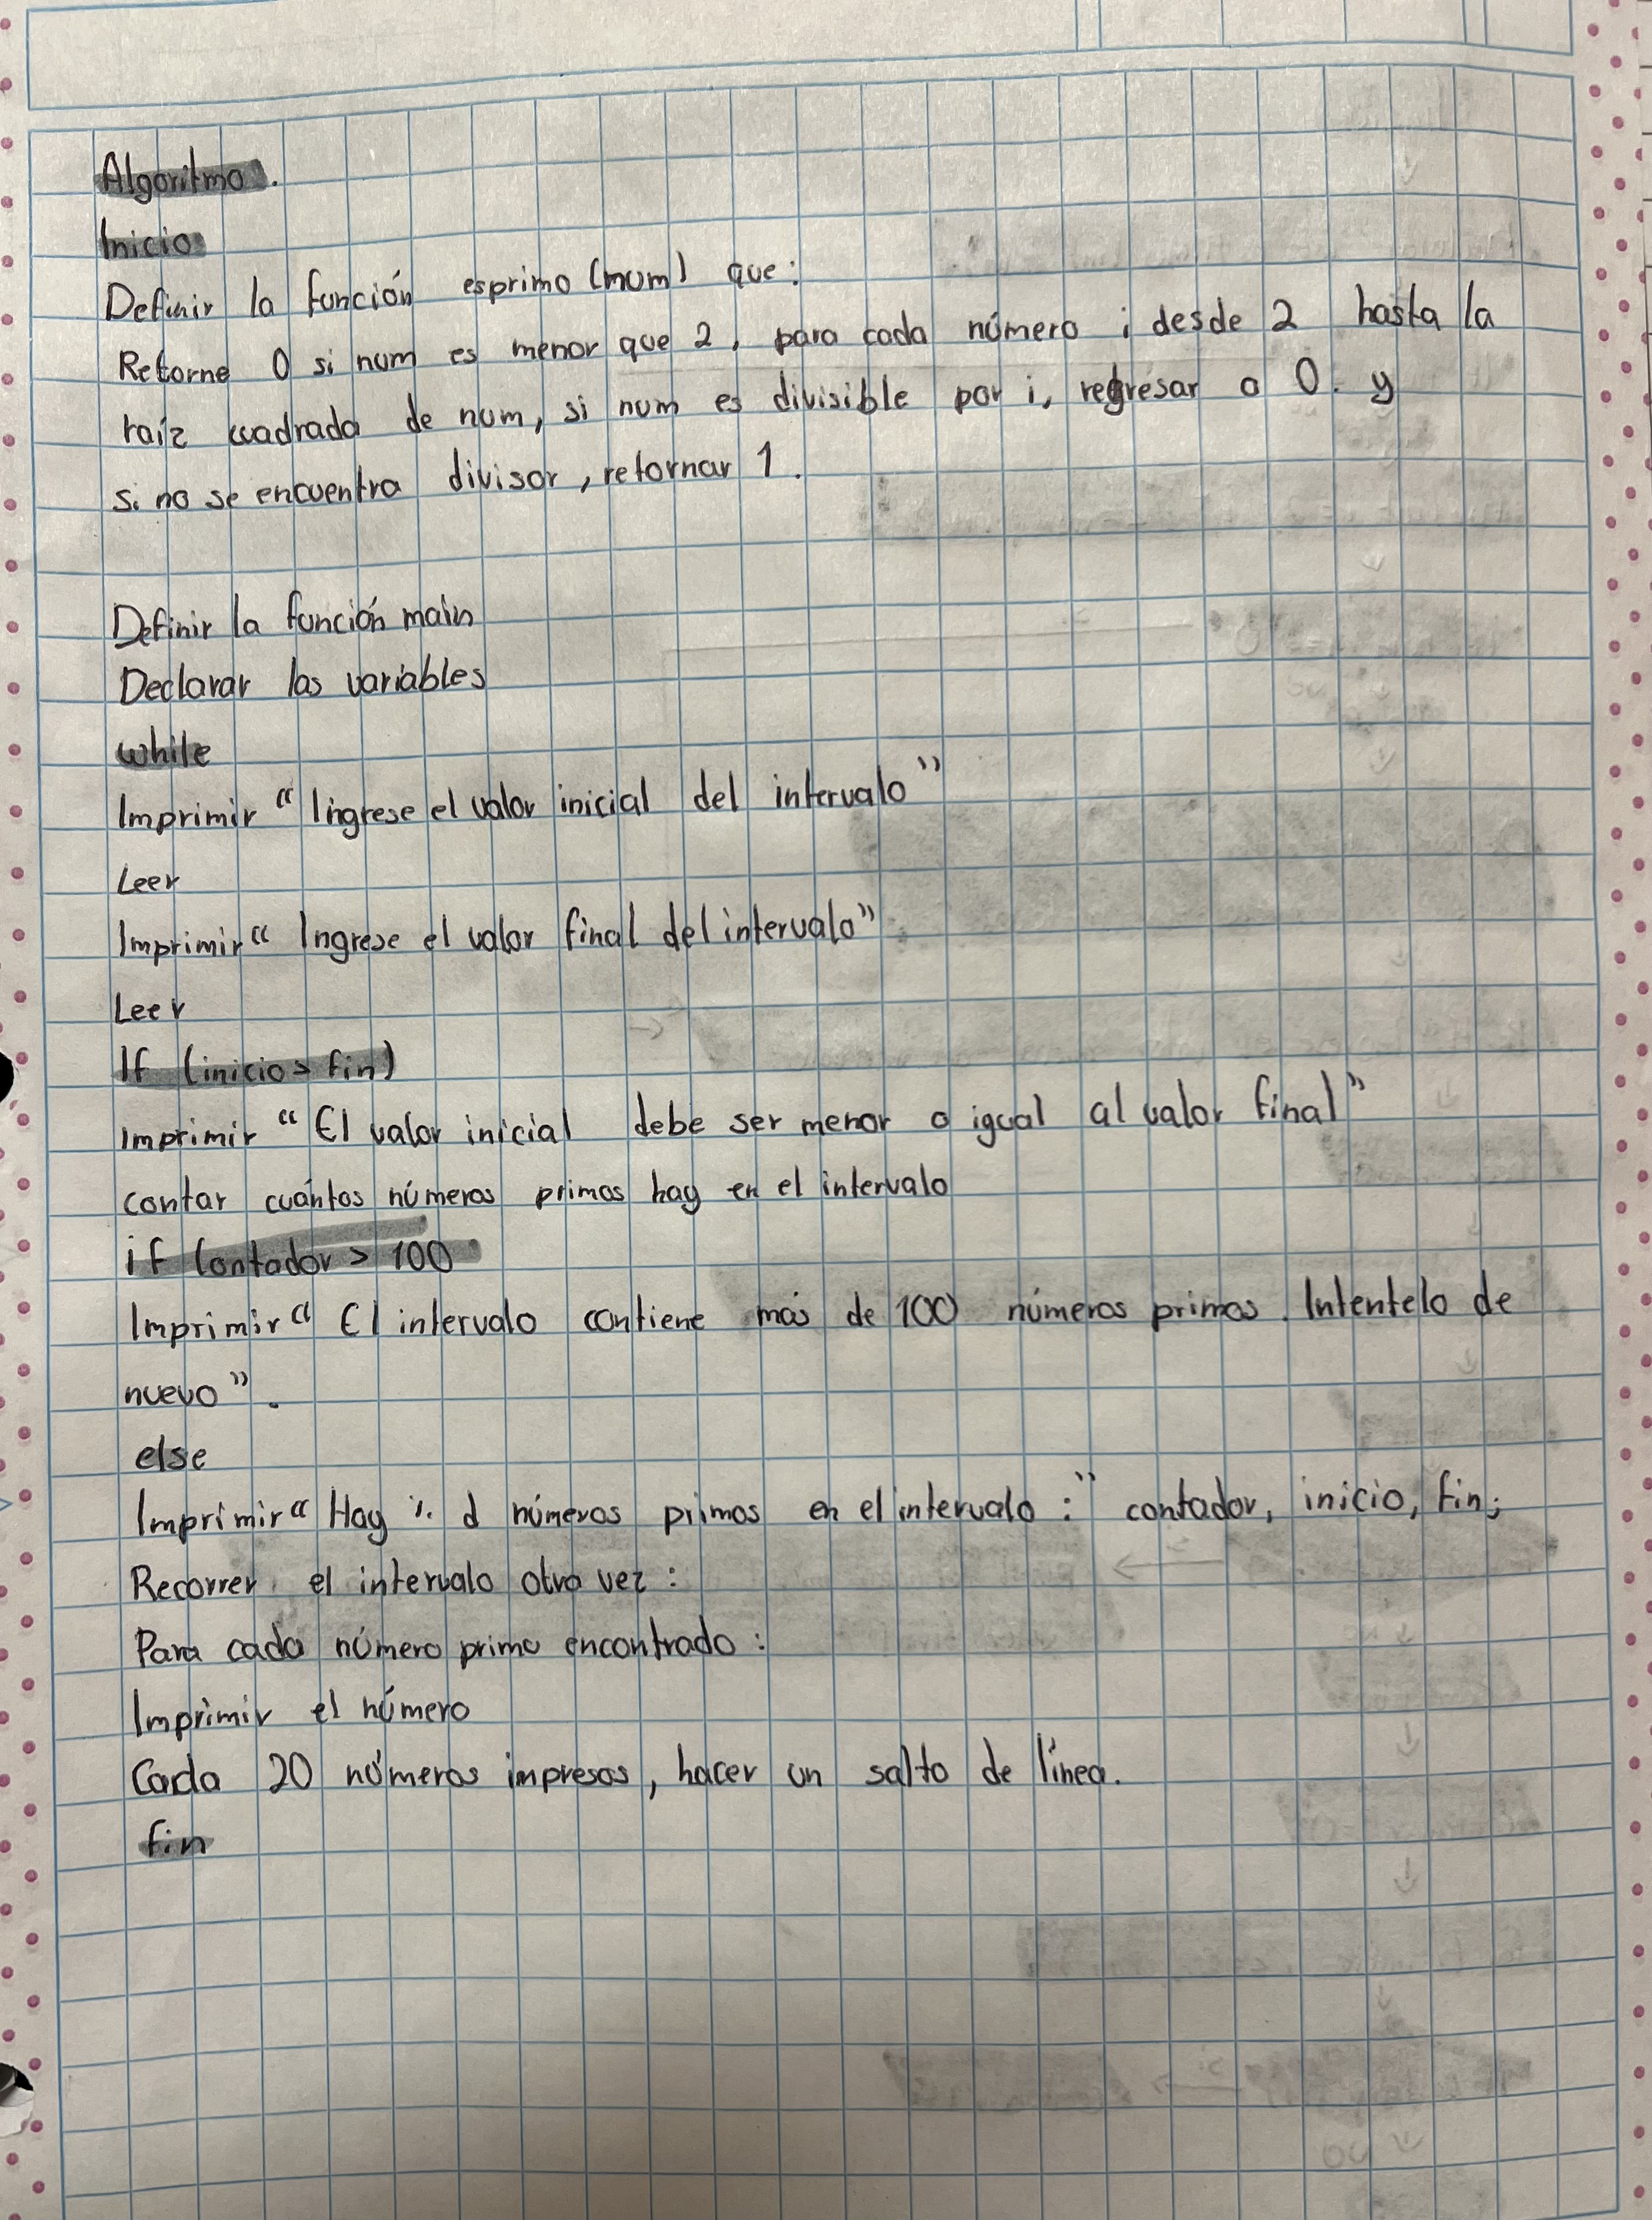 Algoritmo.
Inicio
Definir la función esprimo (num) que:
Retorne 0 si num es menor que 2, para cada número i desde 2 hasta la
raíz cuadrada de num, si num es divisible por i, regresar a 0. y
si no se encuentra divisor, retornar 1.
Definir la función main
Declarar las variables
while
Imprimir "Ingrese el valor inicial del intervalo"
Leer
Imprimir "Ingrese el valor final del intervalo"
Leer
If (inicio > fin)
imprimir "El valor inicial debe ser menor o igual al valor final"
contar cuántos números primos hay en el intervalo
if Contador > 100
Imprimir "El intervalo contiene más de 100 números primos. Intentelo de
nuevo".
else
Imprimir "Hay %d números primos en el intervalo:" contador, inicio, fin;
Recorrer el intervalo otra vez:
Para cada número primo encontrado:
Imprimir el número
Cada 20 números impresos, hacer un salto de línea.
fin